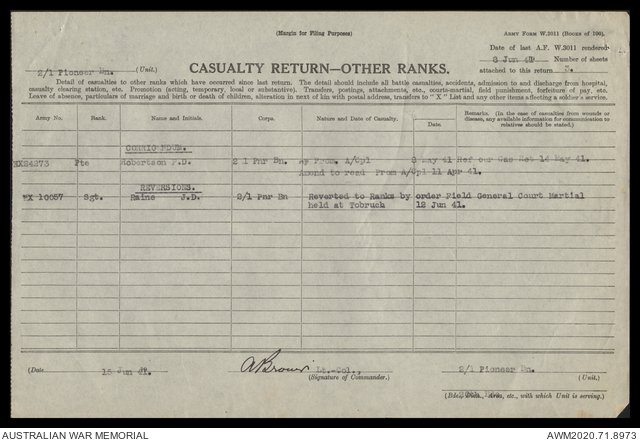 (Margin for Filing Purposes)
ARMY FORM W.3011 (Books of 100).
Date of last A.F. W.3011 rendered
8 Jun 41 Number of sheets
2/1 Pioneer Bn. (Unit.)
CASUALTY RETURN—OTHER RANKS.
attached to this return
Detail of casualties to other ranks which have occurred since last return. The detail should include all battle casualties, accidents, admission to and discharge from hospital,
casualty clearing station, etc. Promotion (acting, temporary, local or substantive). Transfers, postings, attachments, etc., courts-martial, field punishment, forfeiture of pay, etc.
Leave of absence, particulars of marriage and birth or death of children, alteration in next of kin with postal address, transfers to "X" List and any other items affecting a soldier's service.
Army No. Rank. Name and Initials. Corps. Nature and Date of Casualty. Date. Remarks. (In the case of casualties from wounds or disease, any available information for communication to relatives should be stated.)
CORRIGENDUM.
NX24273 Pte Robertson F.D. 2/1 Pnr Bn. Prom. A/Cpl 8 May 41 Ref our Cas Ret 14 May 41.
Amend to read Prom A/Cpl 11 Apr 41.
REVERSIONS.
NX 10057 Sgt. Raine J.D. 2/1 Pnr Bn Reverted to Ranks by order Field General Court Martial
held at Tobruch 12 Jun 41.
(Date 15 Jun 41.
ABrown Lt.-Col.,
(Signature of Commander.)
2/1 Pioneer Bn.
(Bde., Area, etc., with which Unit is serving.)
AUSTRALIAN WAR MEMORIAL
AWM2020.71.8973